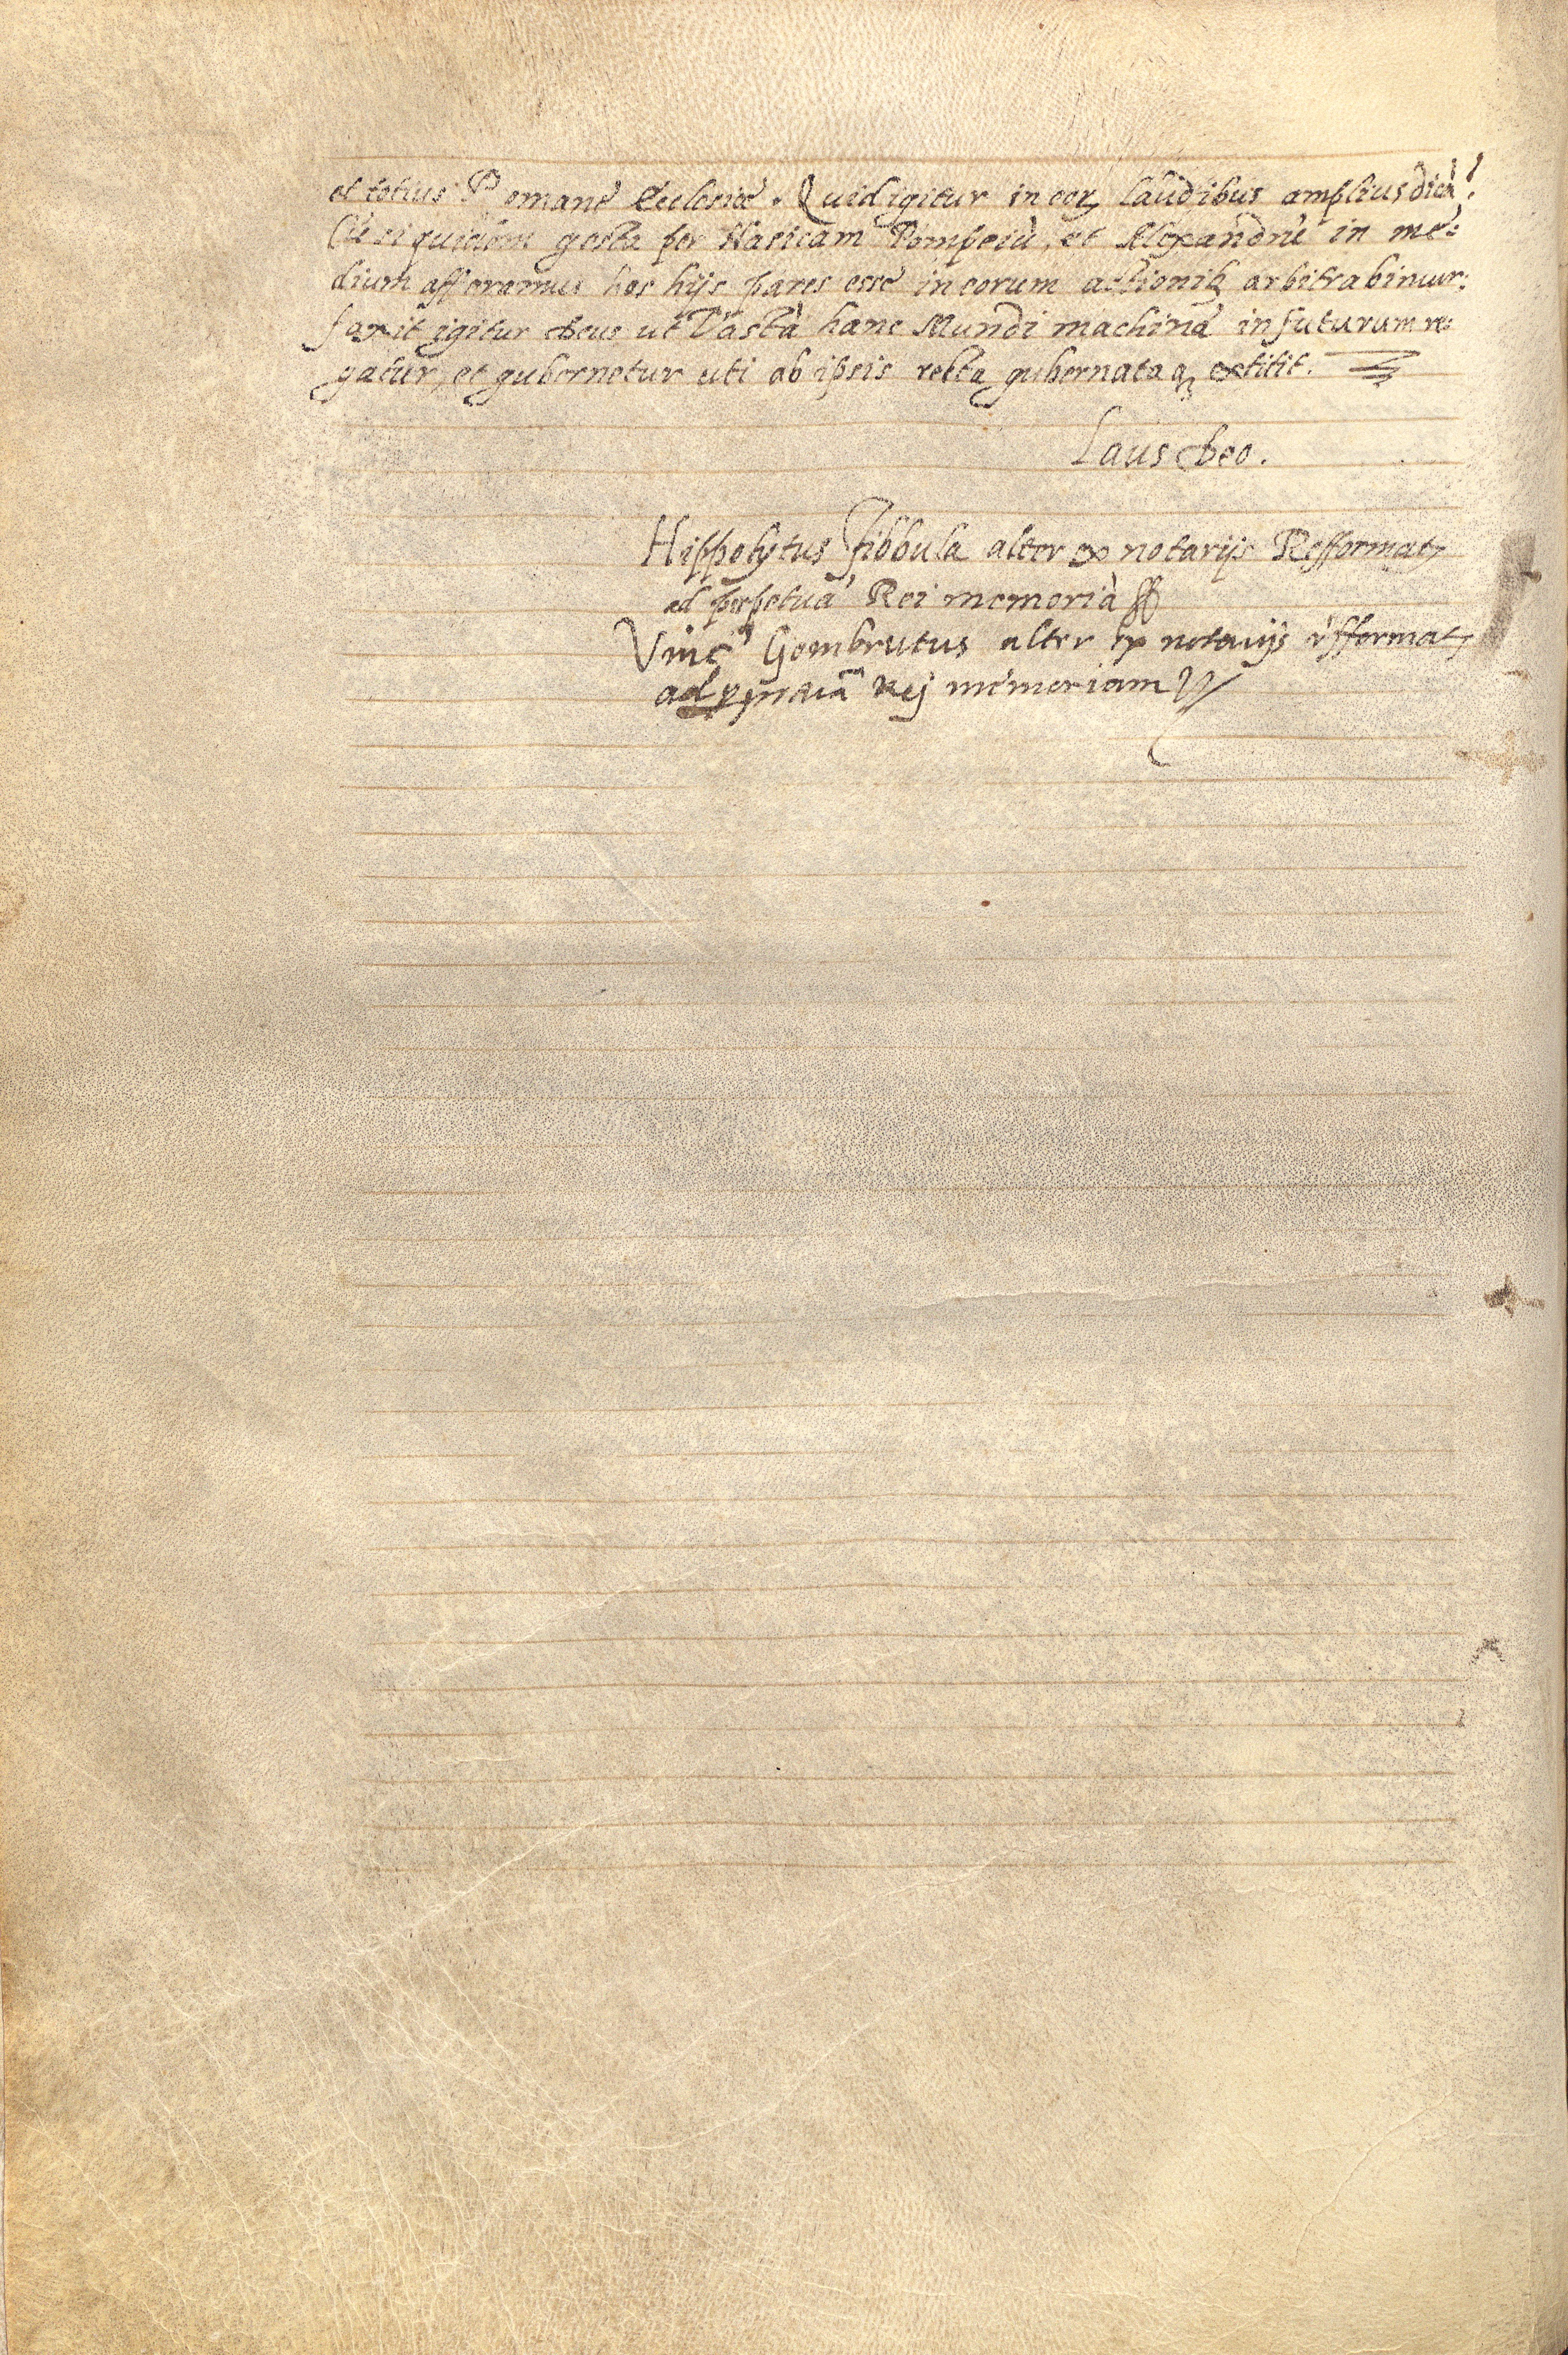 et totius Romane Ecclesiæ. Quid igitur in eoꝝ laudibus amplius dicā?
Cū siquidem gesta per Nasicam Pompeiū, et Alexandrū in me:
dium afferamus hos hijs pares esse in eorum actionibꝫ arbitrabimur:
faxit igitur Deus ut Vastā hanc Mundi machinā in futurum re:
gatur, et gubernetur uti ab ipsis recta gubernataqꝫ extitit.
Laus Deo.
Hippolytus fibbula alter ex notarijs Refformatꝝ
ad perpetuā Rei memoriā
Vinc Gombrutus alter ex notarijs rėfformatꝝ
ad Rej memoriam